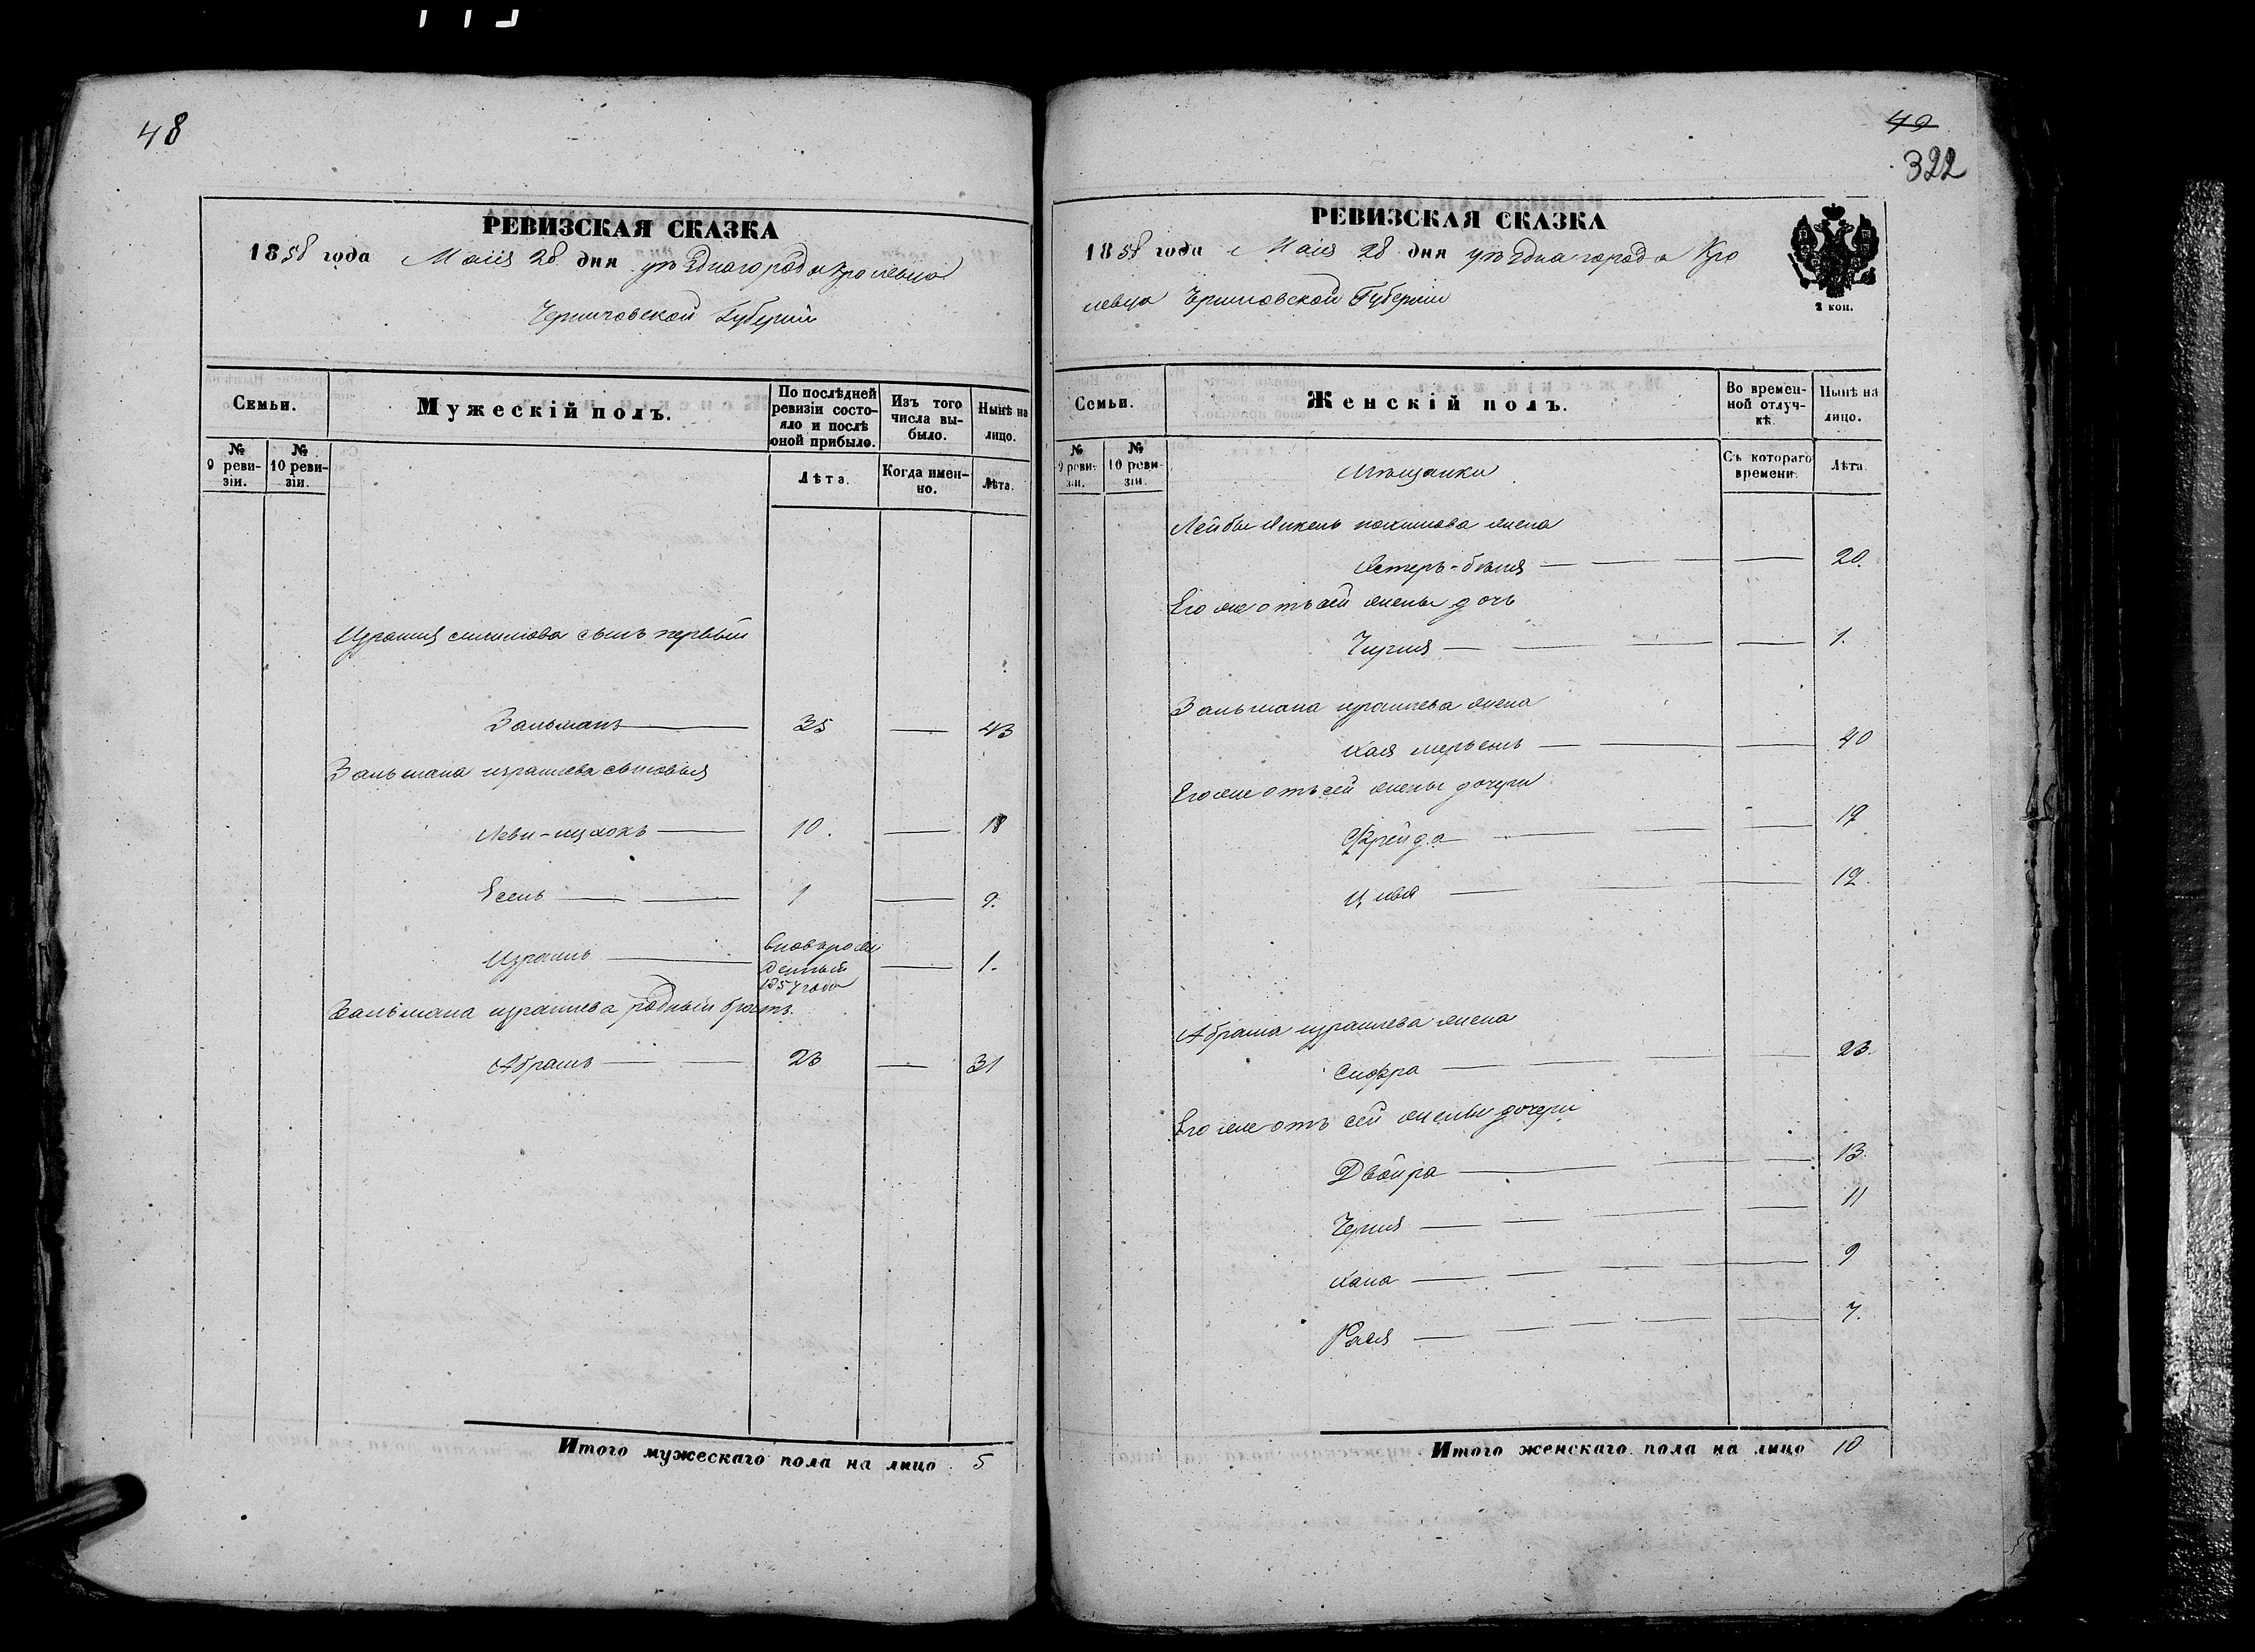 48
РЕВИЗСКАЯ СКАЗКА
1858 года Маія 28 дня уѣзднаго города Кролевца
Черниговской Губерніи
Семьи.
Мужескій полъ.
По послѣдней ревизіи состояло и послѣ оной прибыло.
Изъ того числа выбыло.
Нынѣ на лицо.
№ 9 ревизіи.
№ 10 ревизіи.
Лѣта.
Когда именно.
Лѣта.
Израиля сынъ первый
Зальманъ 35 43
Зальмана израилева сыновья
Леви-ицхокъ 10. 18
Есель 1 9.
Израиль вновьрожденный 1857 года 1.
Зальмана израилева родный братъ
Абрамъ 23 31
Итого мужескаго пола на лицо 5
49
322
РЕВИЗСКАЯ СКАЗКА
1858 года Маія 28 дня уѣзднаго города Кро
левца Черниговской Губерніи
2 коп.
Семьи.
Женскій полъ.
Во временной отлучкѣ.
Нынѣ на лицо.
№ 9 ревизіи.
№ 10 ревизіи.
Съ котораго времени.
Лѣта.
Мѣщанки
Лейбы жена
Эстеръ-бейля 20.
Его же отъ сей жены дочь
1.
Зальмана израилева жена
Хая 40
Его же отъ сей жены дочери
Фрейда 19
Цивя 12.
Абрама израилева жена
Сифра 23.
Его же отъ сей жены дочери
Двойра 13.
Черня 11
Хана 9
Рася 7.
Итого женскаго пола на лицо 10